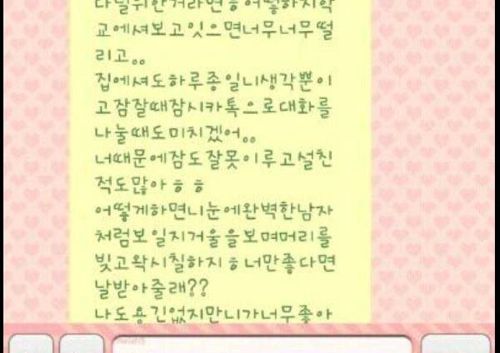 다널위한거라면ㅎ어떻하지학
교에셔보고잇으면너무너무떨
리고。。
집에셔도하루종일니생각뿐이
고잠잘때잠시카톡으로대화를
나눌때도미치겠어。。
너때문에잠도잘못이루고설친
적도많아ㅎㅎ
어떻게하면니눈에완벽한남자
처럼보일지거울을보며머리를
빚고왁시칠하지ㅎ너만좋다면
날받아줄래??
나도용긴없지만니가너무좋아